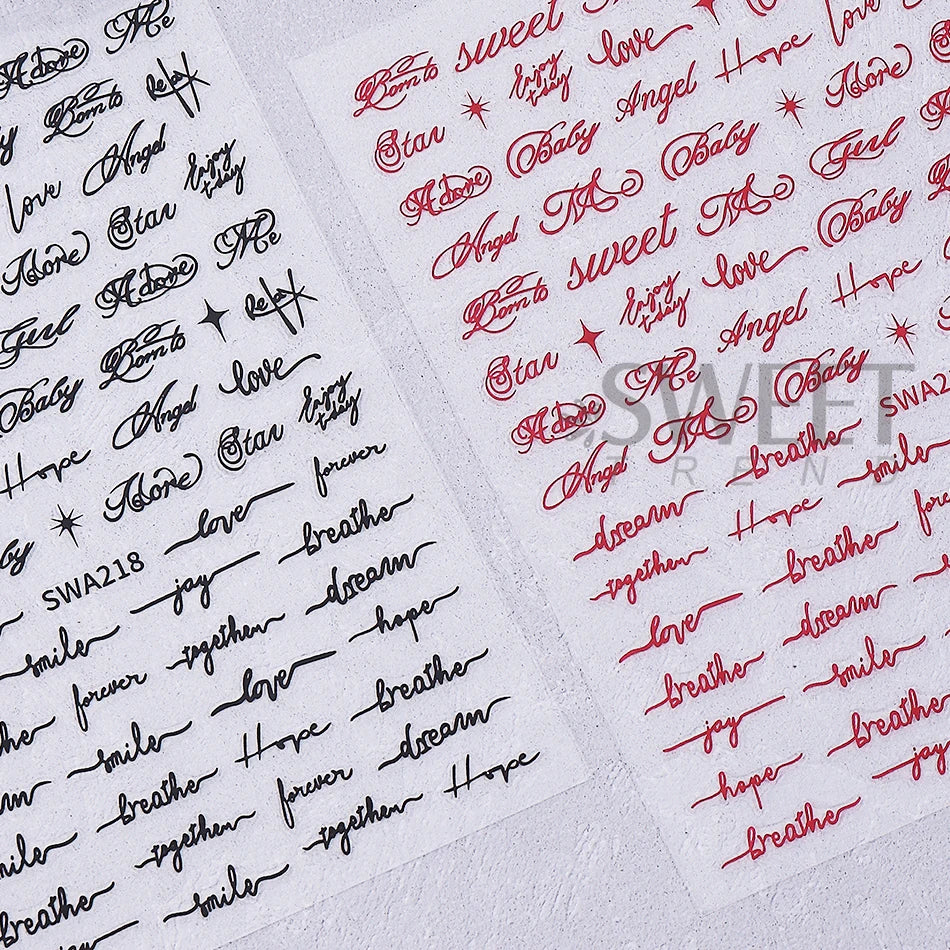 Adore Me
Born to Relax
love Angel
Adore Star Enjoy today
Girl Adore Me
Baby Born to Relax
Hope Angel love
Adore Star Enjoy today
SWA218 love forever
smile jay breathe
forever together dream
smile love hope
breathe Hope breathe
together forever dream
breathe smile together Hope
Born to sweet
Star Enjoy today love
Adore Baby Angel Hope love
Angel Baby Adore
Born to sweet Girl
Star Enjoy today love Baby
Adore Me Angel Hope
Angel Baby SWA2
dream breathe
together Hope smile
love breathe
breathe dream
jay smile
hope breathe
breathe jay
SWEET
TREND